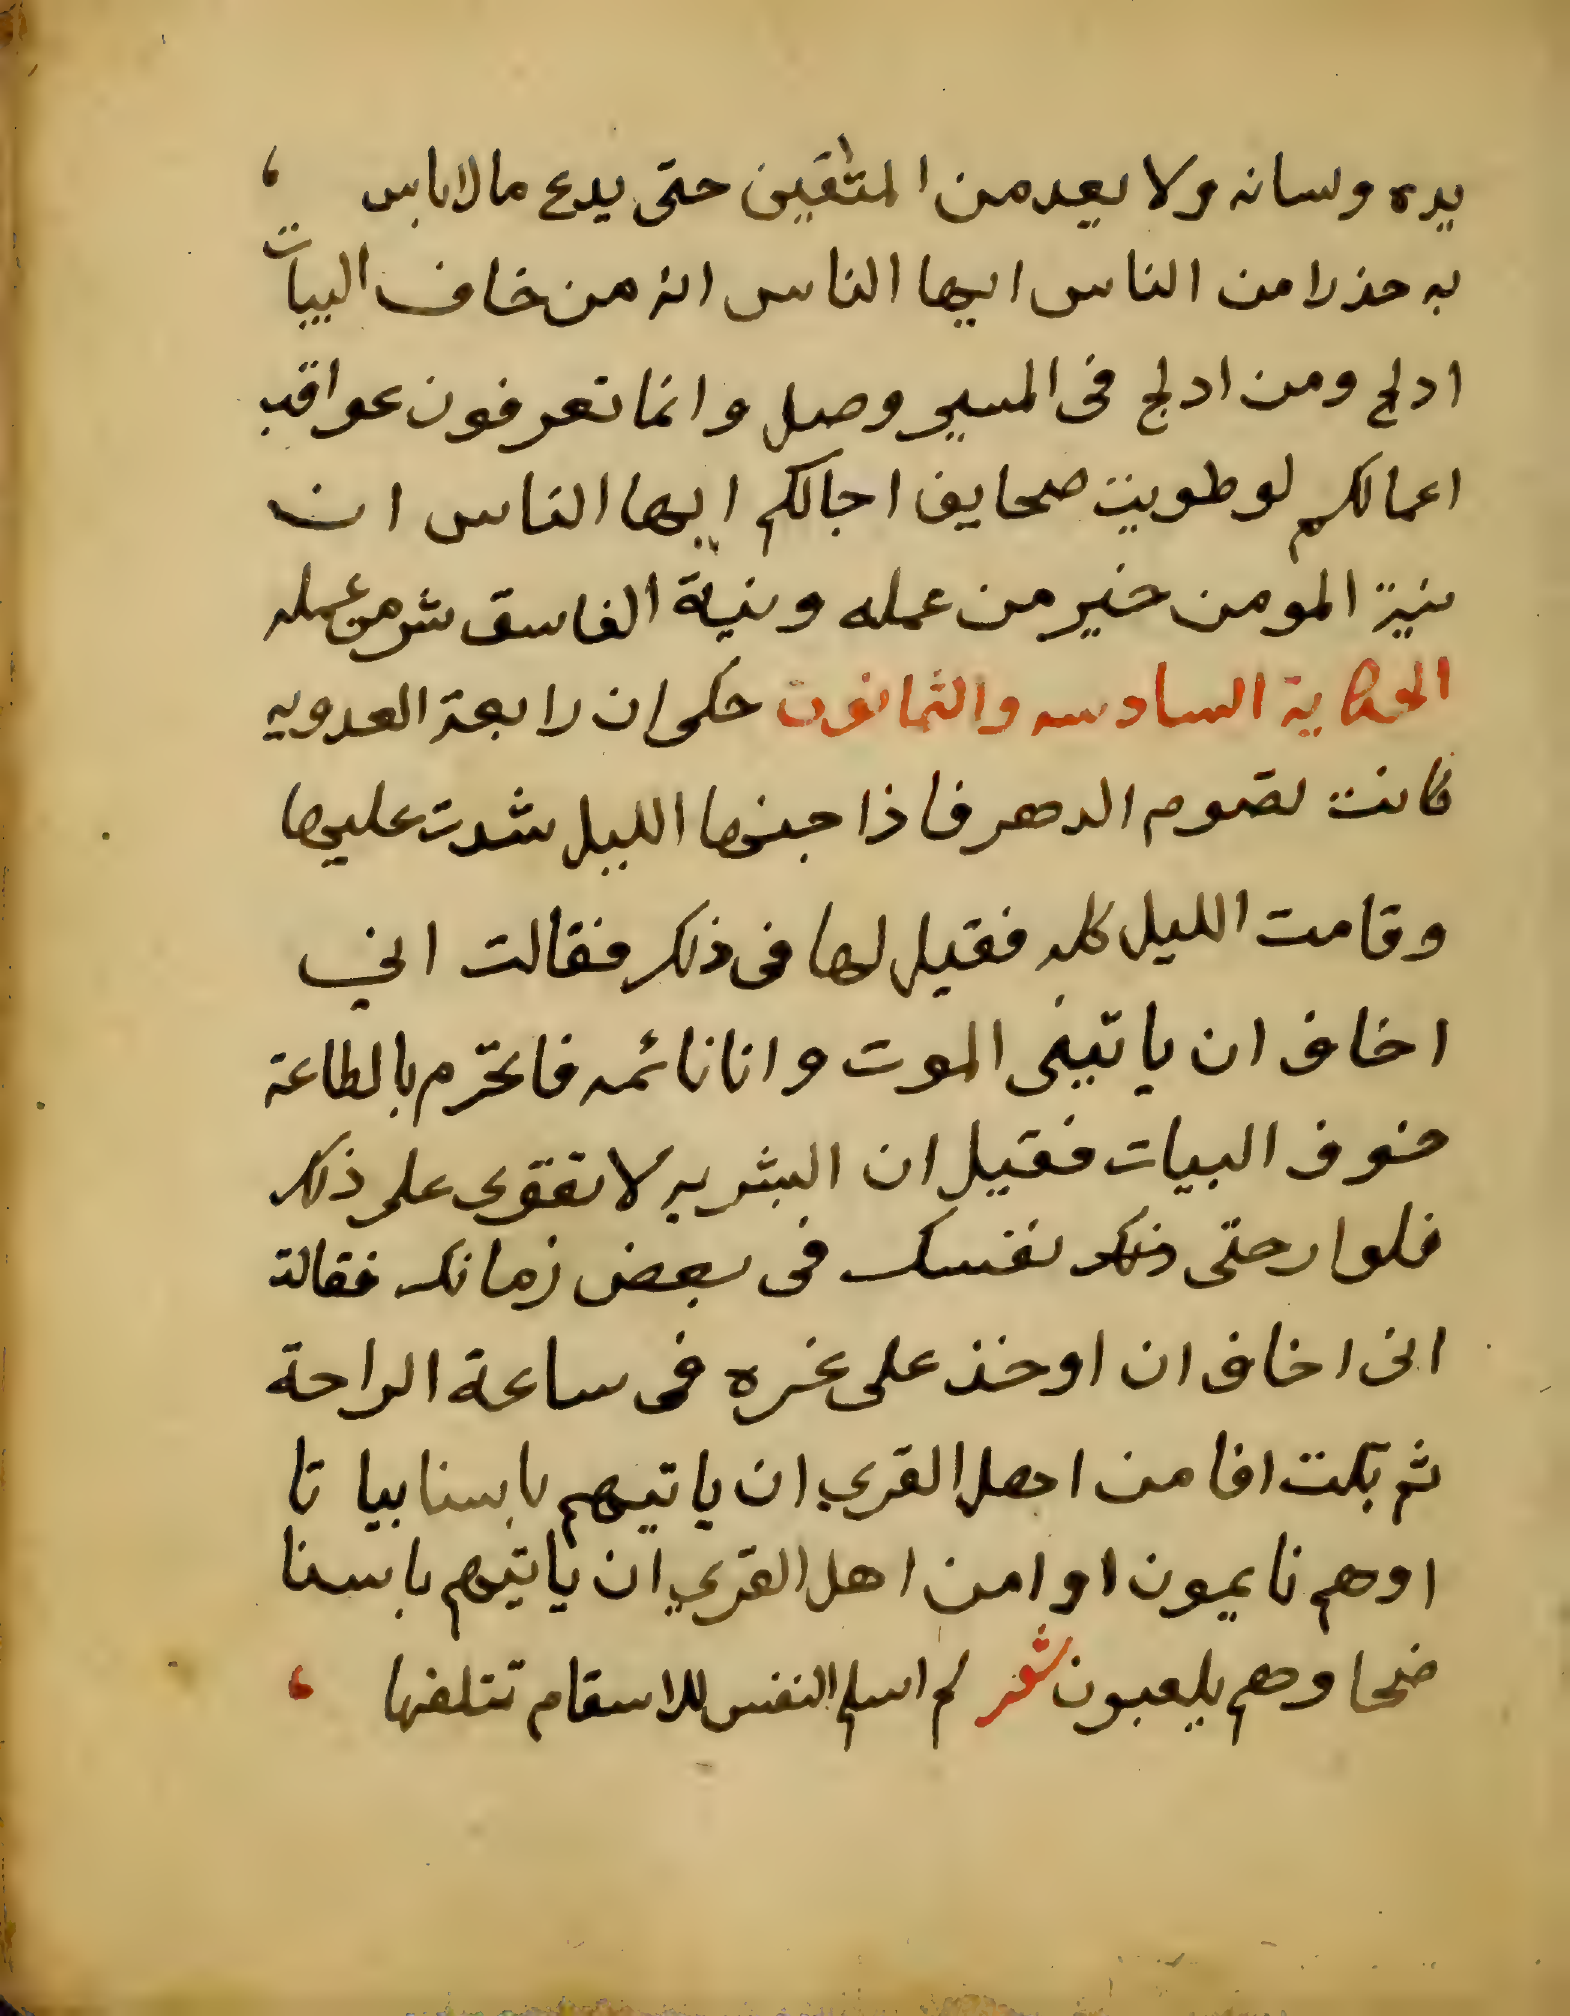 يده ولسانه ولا يعد من المتقين حتى يدع مالا باس
به حذرا من الناس ايها الناس انه من خاف البيات
ادلج ومن ادلج فى المسير وصل وانما تعرفون عواقب
اعمالكم لو طويت صحايف اجالكم ايها الناس ان
نية المومن خير من عمله ونية الفاسق شر من عمله
الحكاية السادسه والثمانون حكى ان رابعة العدويه
كانت تصوم الدهر فاذا جنها الليل شدت عليها
وقامت الليل كله فقيل لها فى ذلك فقالت اني
اخاف ان ياتينى الموت وانا نائمه فاحترم بالطاعة
خوف البيات فقيل ان البشريه لا تقوى على ذلك
فلو ارحتى نفسك فى بعض زمانك فقالت
انى اخاف ان اوخذ على غره فى ساعة الراحة
ثم بكت افا من اهل القري ان ياتيهم باسنا بيا تا
اوهم نايمون اوامن اهل القري ان ياتيهم باسنا
ضحا وهم يلعبون شعر لم اسلم النفس للاسقام تتلفها